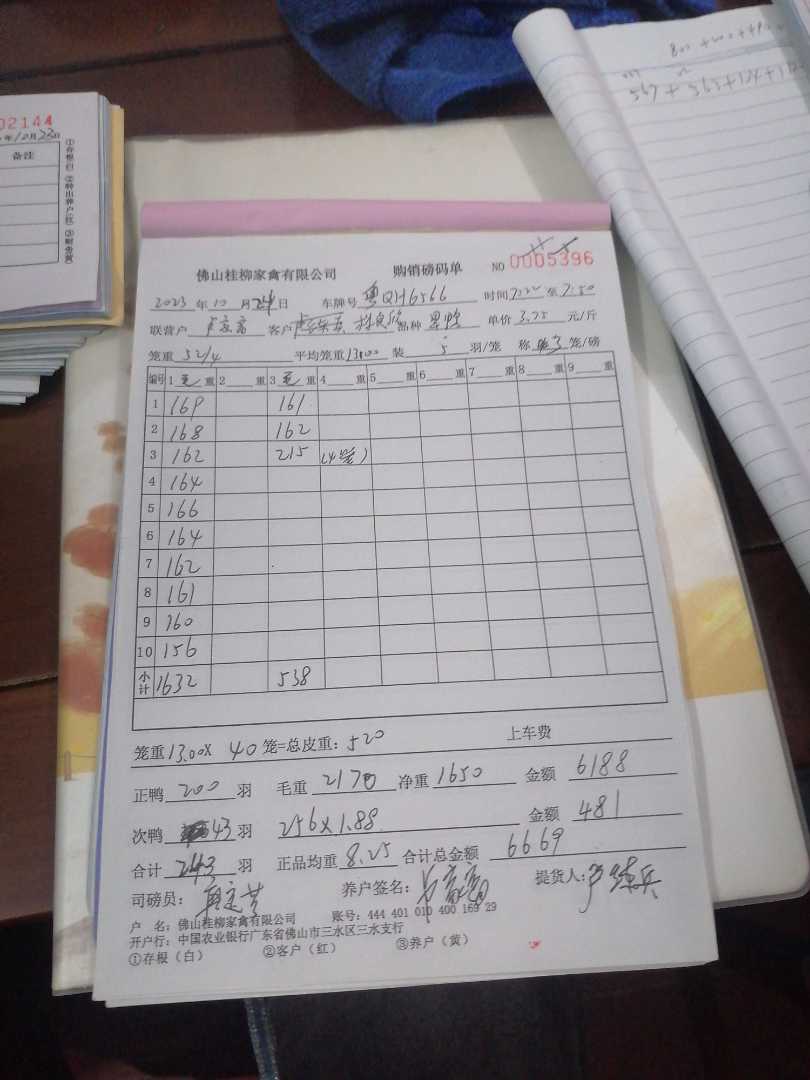 02144
年10月23日
备注
①存根(白)②转出养户(红)③财务(黄)
567 + 565+124+1
佛山桂柳家禽有限公司 购销磅码单 NO 0005396
2023 年 10 月 24 日 车牌号 粤QH6566 时间 7:20 至 7:50
联营户 客户 品种 单价 3.75 元/斤
笼重 52/4 平均笼重 13.00 装 5 羽/笼 称 3 笼/磅
编号 1 毛 重 2 重 3 毛 重 4 重 5 重 6 重 7 重 8 重 9 重
1 169 161
2 168 162
3 162 215 (4笼)
4 164
5 166
6 164
7 162
8 161
9 160
10 156
小计 1632 538
笼重 13.00X 40 笼=总皮重: 520 上车费
正鸭 200 羽 毛重 2170 净重 1650 金额 6188
次鸭 43 羽 256X1.88 金额 481
合计 243 羽 正品均重 8.25 合计总金额 6669
司磅员: 养户签名: 提货人:
户 名: 佛山桂柳家禽有限公司 账号: 444 401 010 400 169 29
开户行: 中国农业银行广东省佛山市三水区三水支行
①存根(白) ②客户(红) ③养户(黄)